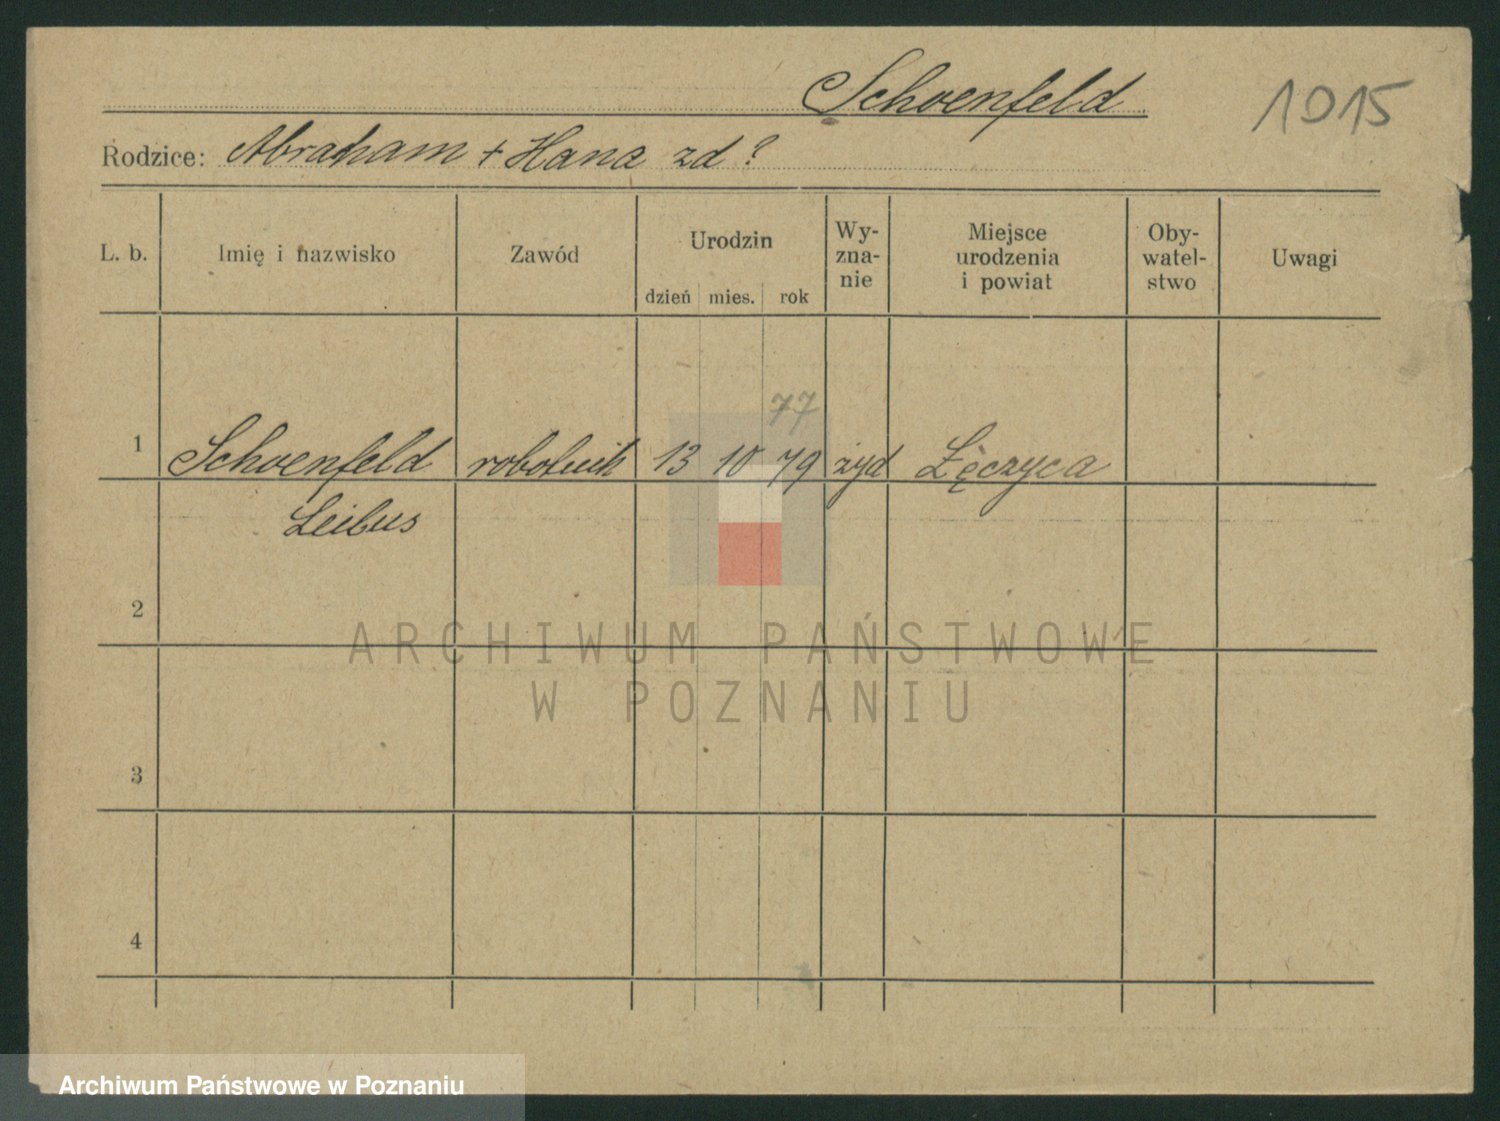 Schoenfeld
1015
Rodzice: Abraham + Hana zd ?
L. b. Imię i nazwisko Zawód Urodzin dzień mies. rok Wy-zna-nie Miejsce urodzenia i powiat Oby-watel-stwo Uwagi
77
1 Schoenfeld robotnik 13 10 79 żyd Łęczyca
Leibus
2
ARCHIWUM PAŃSTWOWE
W POZNANIU
3
4
Archiwum Państwowe w Poznaniu